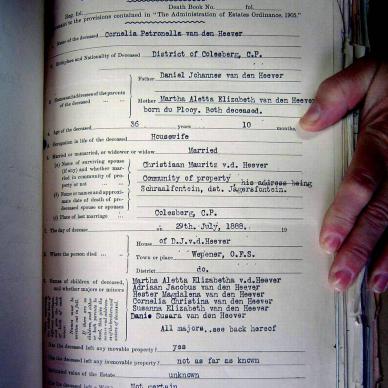 Death Book No. fol.
Reg. fol.
to the provisions contained in "The Administration of Estates Ordinance, 1905."
Name of the deceased Cornelia Petronella van den Heever
Birthplace and Nationality of Deceased District of Colesberg, C.P.
Father Daniel Johannes van den Heever
Names and addresses of the parents
of the deceased
Mother Martha Aletta Elizabeth van den Heever
born du Plooy. Both deceased.
Age of the deceased 36 years 10 months
Occupation in life of the deceased Housewife
Married or unmarried, widower or widow Married
(a) Name of surviving spouse Christiaan Mauritz v.d. Heever
(if any) and whether married in community of property or not Community of property his address being
Schraalfontein, dst. Jagersfontein.
(b) Name or names and approximate date of death of predeceased spouse or spouses
(c) Place of last marriage Colesberg, C.P.
The day of decease 29th. July, 1888. 19
House of D.J.v.d.Heever
Where the person died Town or place Wepener, O.F.S.
District do.
Names of children of deceased, and whether majors or minors
Martha Aletta Elizabetha v.d.Heever
Adriaan Jacobus van den Heever
Hester Magdalena van den Heever
Cornelia Christina van den Heever
Susanna Elizabeth van den Heever
Danie Susara van den Heever
All majors, see back hereof
Has the deceased left any movable property? yes
Has the deceased left any immovable property? not as far as known
Estimated value of the Estate unknown
Not certain